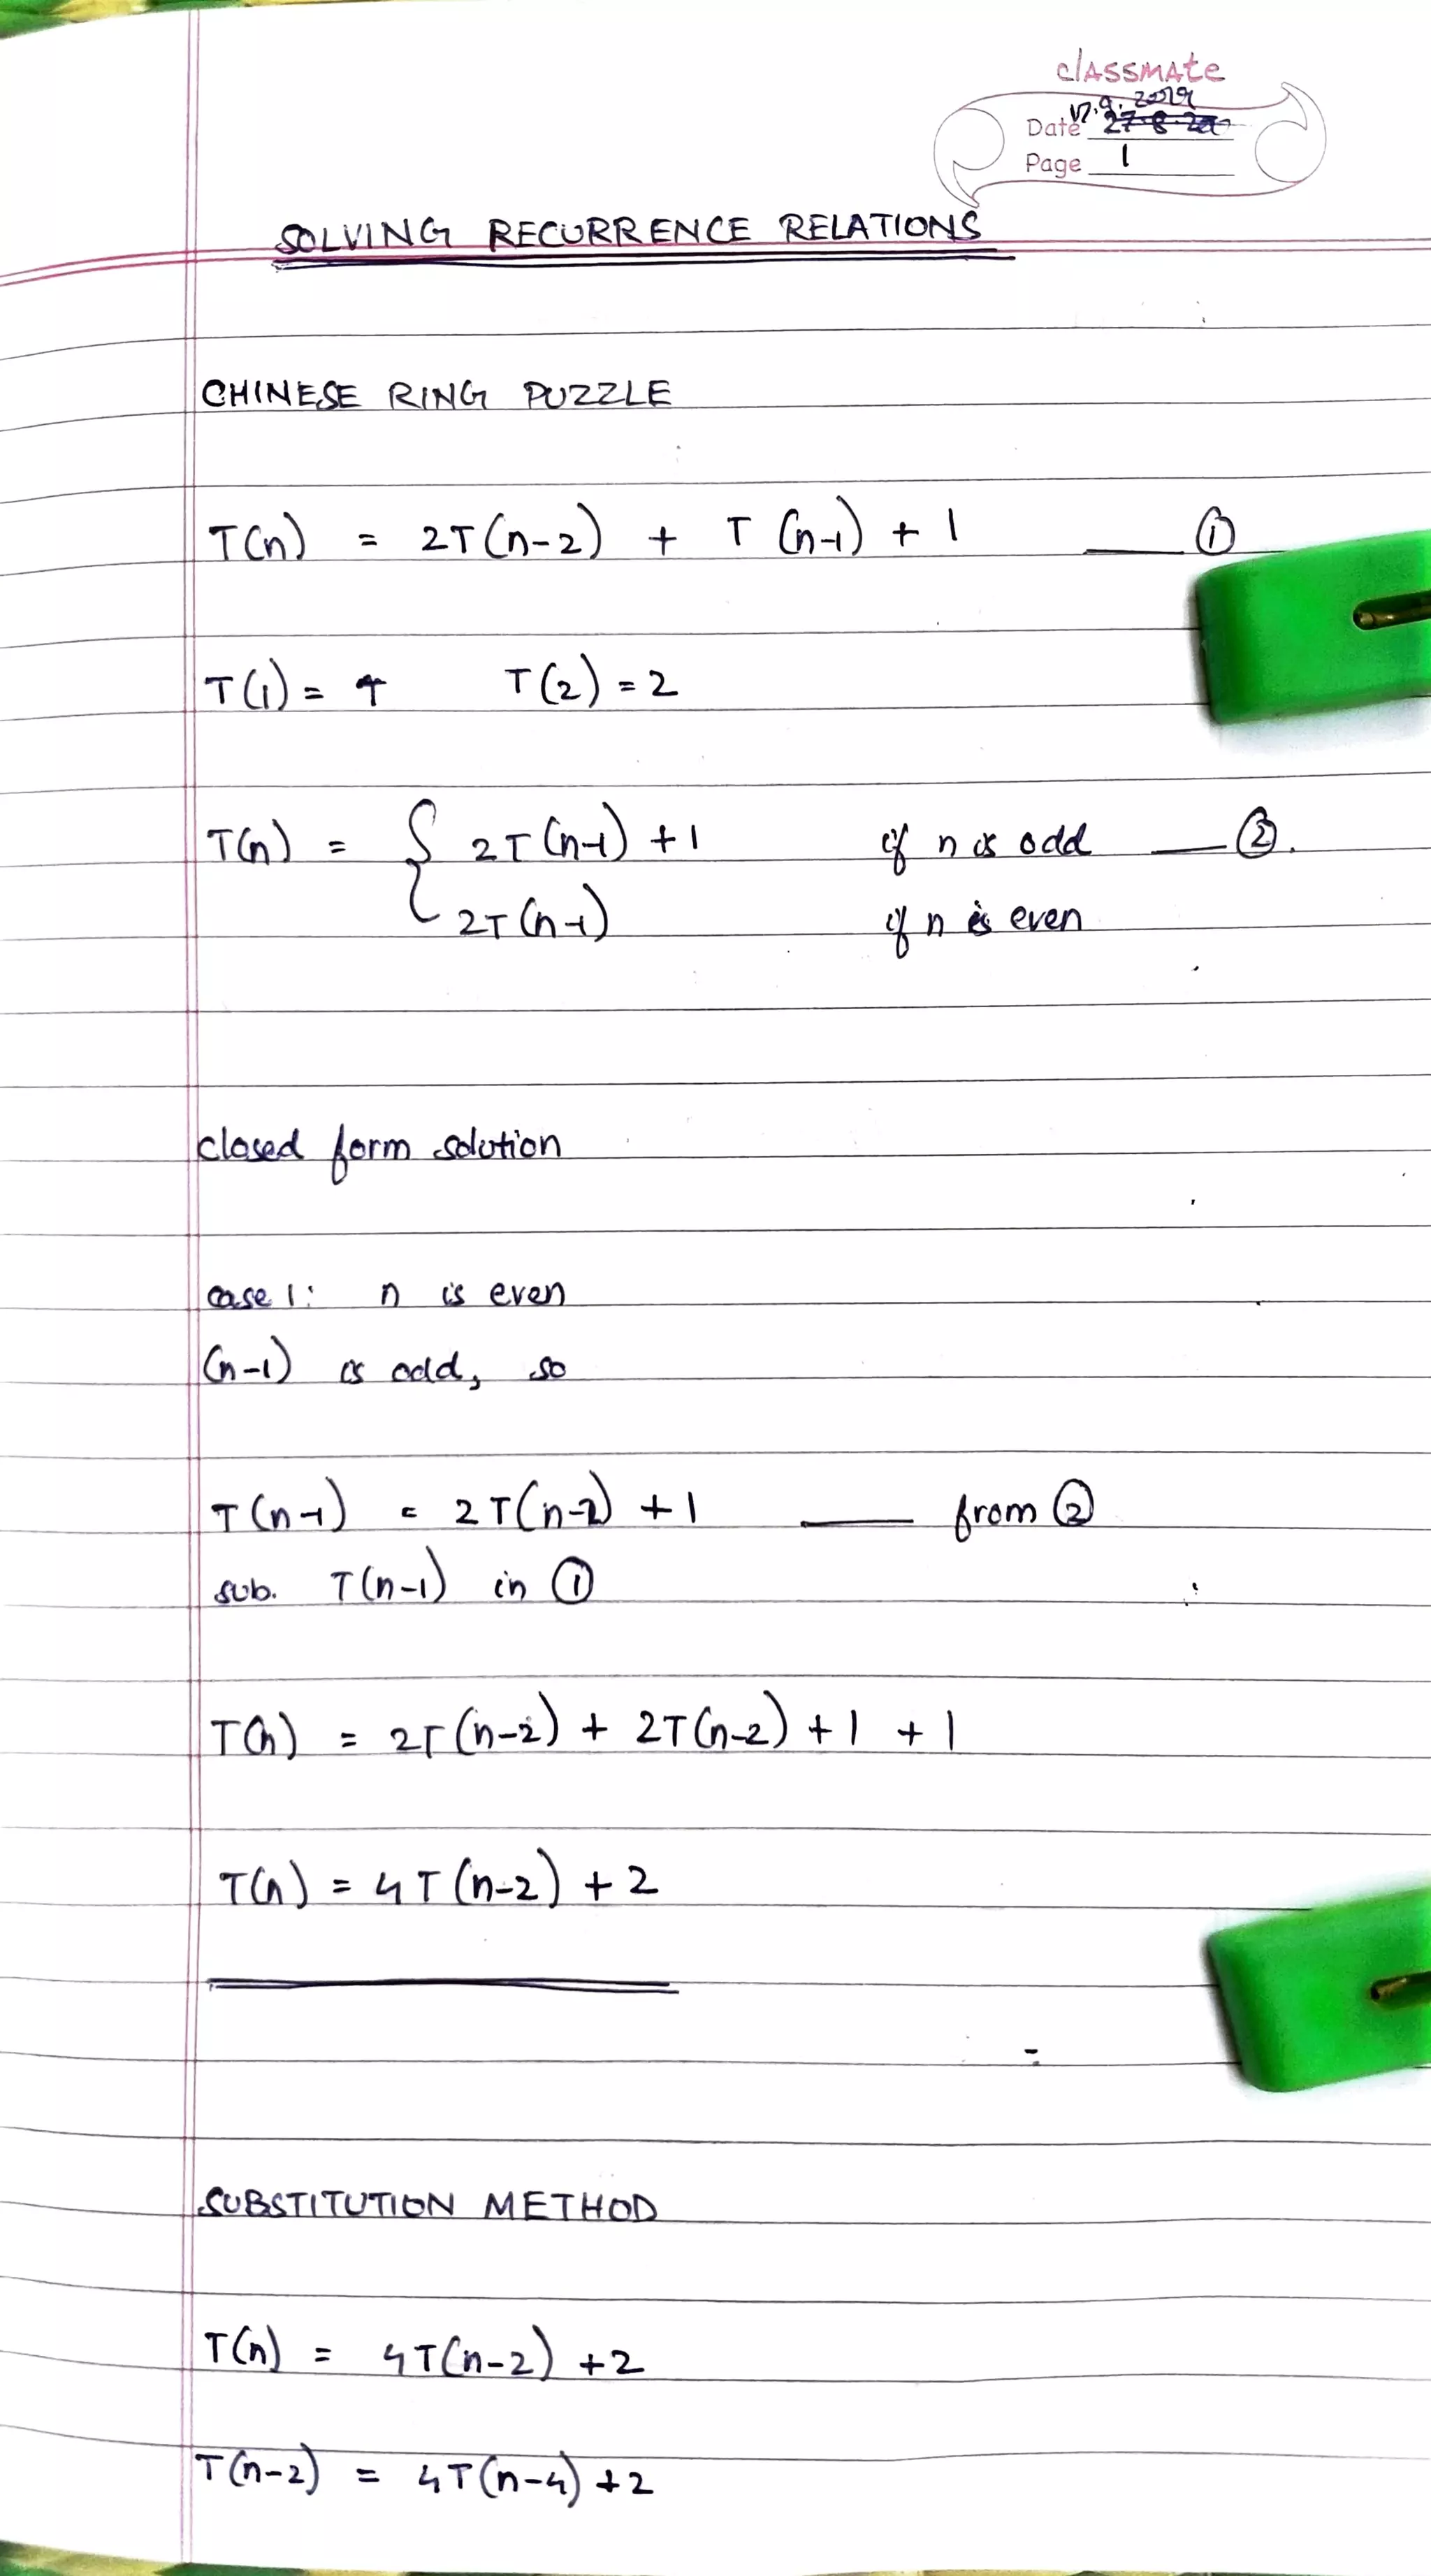 classmate
Date 17.9.2019
Page 1
SOLVING RECURRENCE RELATIONS
CHINESE RING PUZZLE
T(n) = 2T(n-2) + T(n-1) + 1 —— ①
T(1) = 1 T(2) = 2
T(n) = { 2T(n-1) + 1 if n is odd —— ②.
2T(n-1) if n is even
closed form solution
case 1: n is even
(n-1) is odd, so
T(n-1) = 2T(n-2) + 1 —— from ②
sub. T(n-1) in ①
T(n) = 2T(n-2) + 2T(n-2) + 1 + 1
T(n) = 4T(n-2) + 2
SUBSTITUTION METHOD
T(n) = 4T(n-2) + 2
T(n-2) = 4T(n-4) + 2